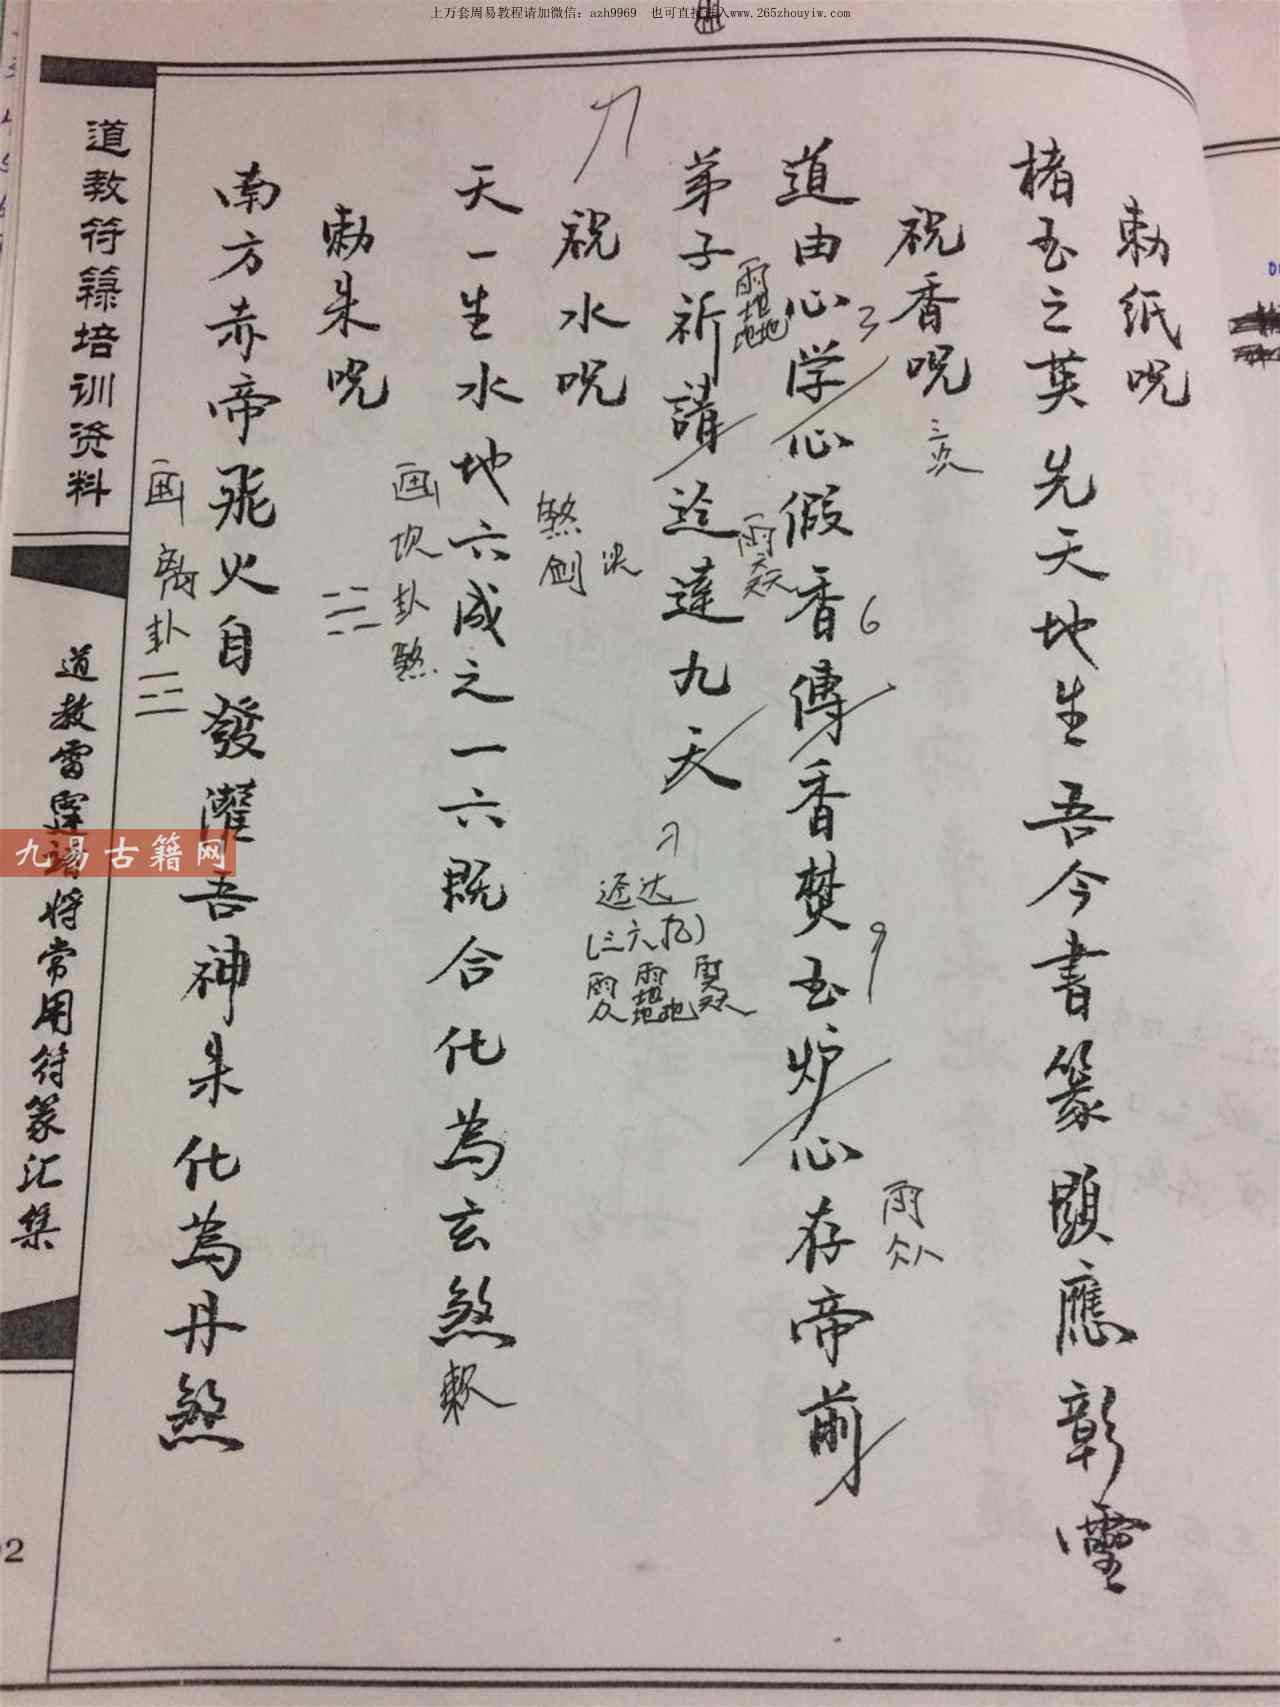 上万套周易教程请加微信：azh9969 也可直接进入www.265zhouyiw.com
勅纸呪
楮玉之英先天地生吾今書篆顕應彰靈
祝香呪
三次
道由心学心假香傳香焚玉炉心存帝前
3
6
9
弟子祈請迳達九天
迳达
祝水呪
煞剑决
天一生水地六成之一六既合化為玄煞
画坎卦煞
勅朱呪
南方赤帝飛火自發灌吾神朱化為丹煞
画离卦
道教符籙培训资料
道教雷霆诸将常用符篆汇集
九易古籍网